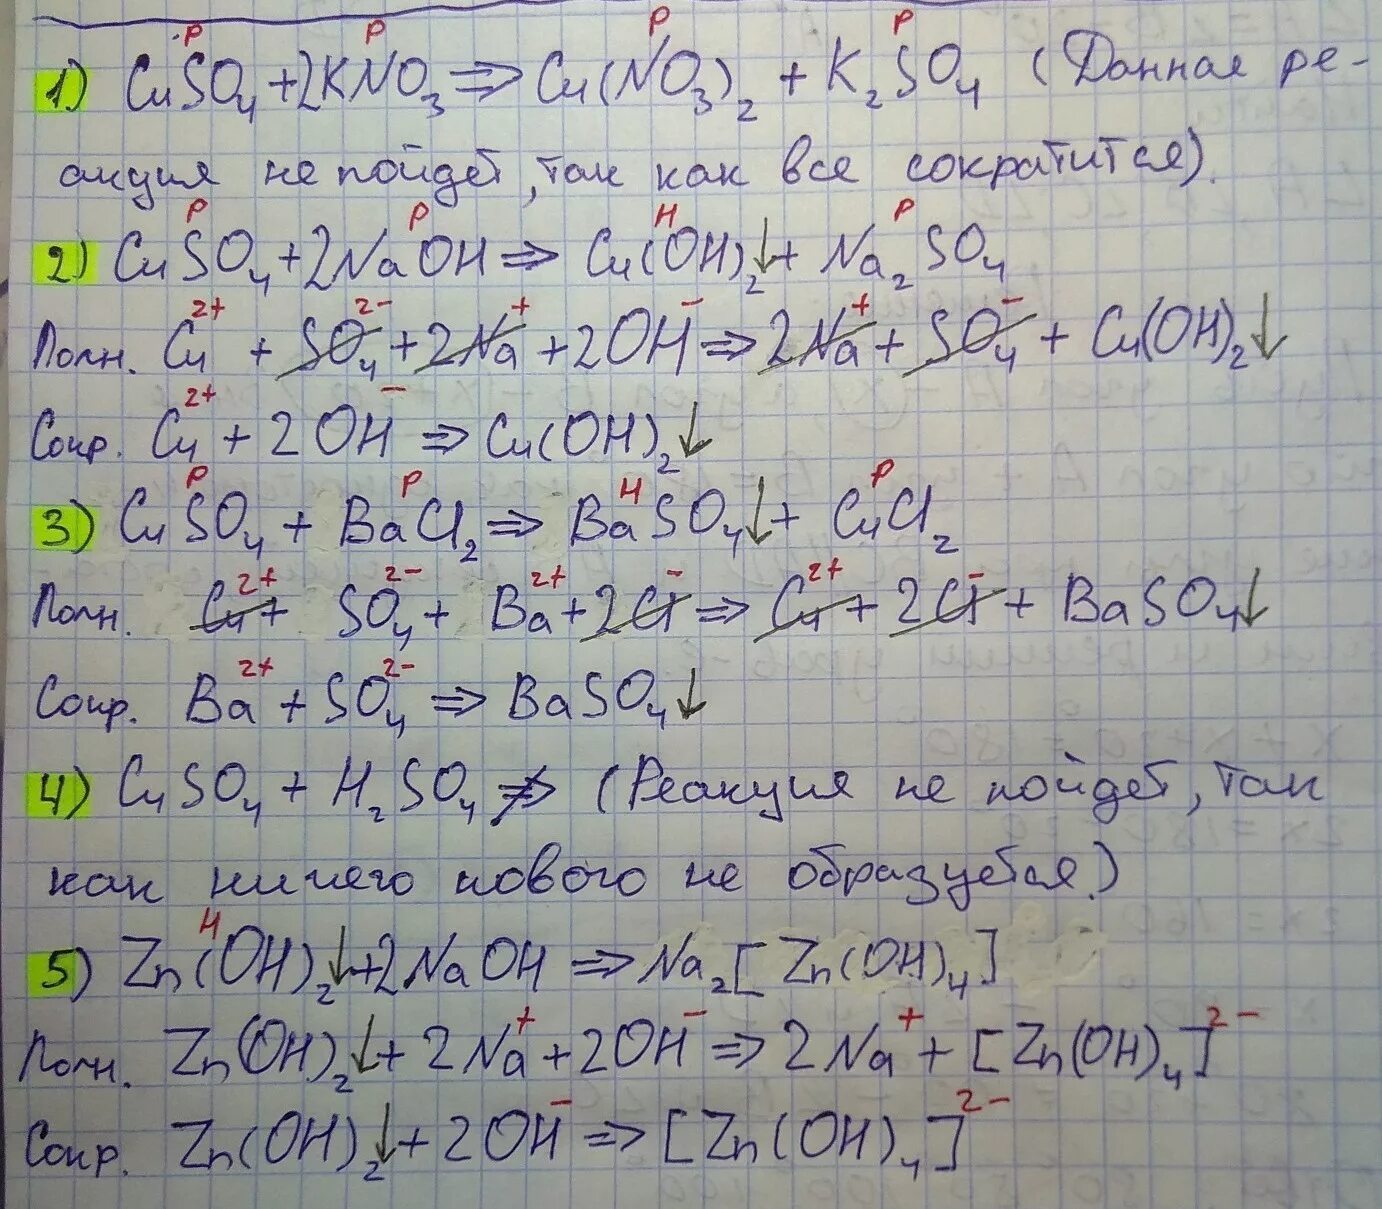 р р р р
1) CuSO₄+2KNO₃ ⇒ Cu(NO₃)₂ + K₂SO₄ (Данная ре-
акция не пойдет, так как все сократится).
р р н р
2) CuSO₄+2NaOH ⇒ Cu(OH)₂↓+ Na₂SO₄
Полн. Cu²⁺ + SO₄²⁻+2Na⁺+2OH⁻ ⇒ 2Na⁺+ SO₄⁻ + Cu(OH)₂↓
Сокр. Cu²⁺ + 2OH⁻ ⇒ Cu(OH)₂↓
р р н р
3) CuSO₄ + BaCl₂ ⇒ BaSO₄↓+ CuCl₂
Полн. Cu²⁺+ SO₄²⁻+ Ba²⁺+2Cl⁻ ⇒ Cu²⁺+ 2Cl⁻+ BaSO₄↓
Сокр. Ba²⁺+SO₄²⁻ ⇒ BaSO₄↓
4) CuSO₄ + H₂SO₄ ⇏ (Реакция не пойдет, так
как ничего нового не образуется.)
н
5) Zn(OH)₂↓+2NaOH ⇒ Na₂[Zn(OH)₄]
Полн. Zn(OH)₂↓+ 2Na⁺+2OH⁻ ⇒ 2Na⁺+ [Zn(OH)₄]²⁻
Сокр. Zn(OH)₂↓+ 2OH⁻ ⇒ [Zn(OH)₄]²⁻